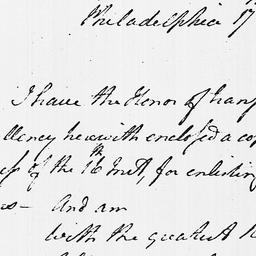 Philadelphia 17
I have the Honor of trans
llency herewith enclosed a cop
ess of the 16th Inst, for enlisting
rs— And am
with the greatest R